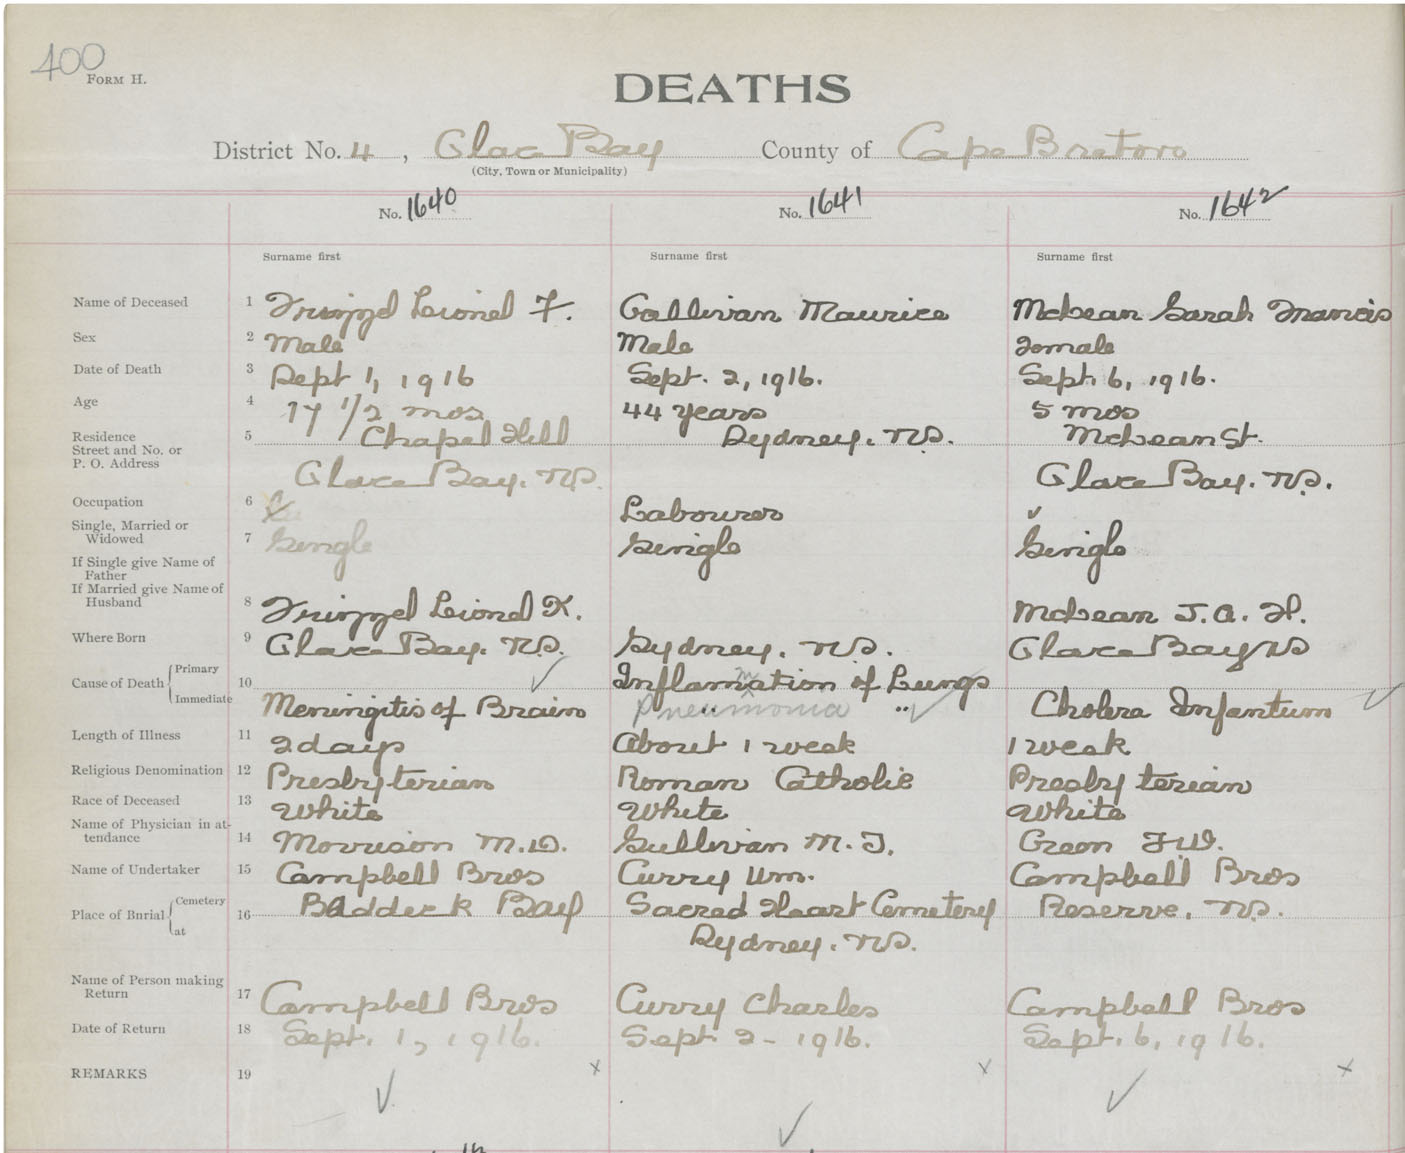 400
FORM H.
DEATHS
District No. 4, Glace Bay County of Cape Breton
(City, Town or Municipality)
No. 1640 No. 1641 No. 1642
Surname first Surname first Surname first
Name of Deceased 1 Frizzel Lionel F. Gallivan Maurice McLean Sarah Francis
Sex 2 Male Male Female
Date of Death 3 Sept 1, 1916 Sept. 2, 1916. Sept. 6, 1916.
Age 4 17 1/2 mos 44 years 5 mos
Residence 5 Chapel Hill Sydney. N.S. McLean St.
Street and No. or
P. O. Address Glace Bay. N.S. Glace Bay. N.S.
Occupation 6 Labourer
Single, Married or
Widowed 7 Single Single Single
If Single give Name of
Father
If Married give Name of
Husband 8 Frizzel Lionel X. McLean J. A. H.
Where Born 9 Glace Bay. N.S. Sydney. N.S. Glace Bay NS
Cause of Death Primary 10 Inflammation of Lungs
Immediate Meningitis of Brain Pneumonia " Cholera Infantum
Length of Illness 11 2 days About 1 week 1 week
Religious Denomination 12 Presbyterian Roman Catholic Presbyterian
Race of Deceased 13 White White White
Name of Physician in at-
tendance 14 Morrison M.D. Sullivan M. T. Green F.W.
Name of Undertaker 15 Campbell Bros Curry Wm. Campbell Bros
Place of Burial Cemetery 16 Baddeck Bay Sacred Heart Cemetery Reserve, N.S.
at Sydney. N.S.
Name of Person making
Return 17 Campbell Bros Curry Charles Campbell Bros
Date of Return 18 Sept. 1, 1916. Sept 2 - 1916. Sept. 6, 1916.
REMARKS 19 x x x